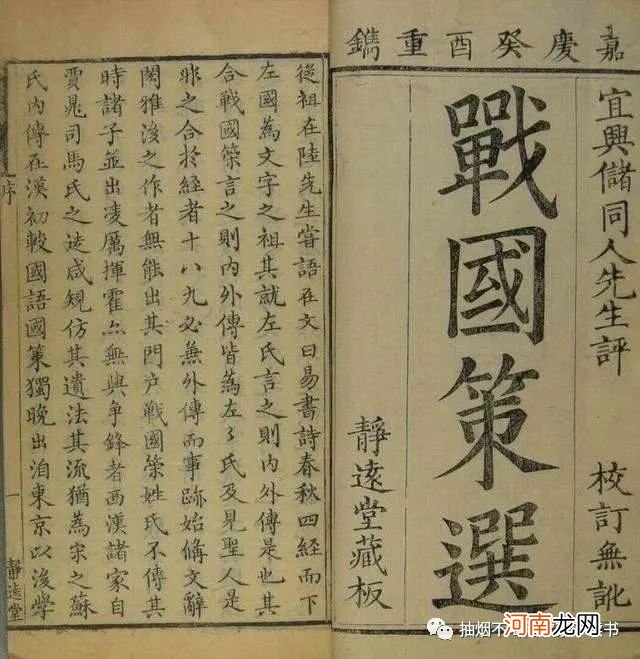 嘉慶癸酉重鐫
宜興儲同人先生評
校訂無訛
戰國策選
靜遠堂藏板
從祖在陸先生嘗語在文曰易書詩春秋四經而下
左國為文字之祖其就左氏言之則內外傳是也其
合戰國策言之則內外傳皆為左々氏及見聖人是
非之合於經者十八九必無外傳而事跡始備文辭
閎雅浚之作者無能出其門户戰國策姓氏不傳其
時諸子並出凌厲揮霍亦無與爭鋒者西漢諸家自
賈晁司馬氏之徒咸規仿其遺法其流猶為宋之蘇
氏內傳在漢初較國語國策獨晚出洎東京以浚學
序
一
靜遠堂
抽烟不
书
河南龙网